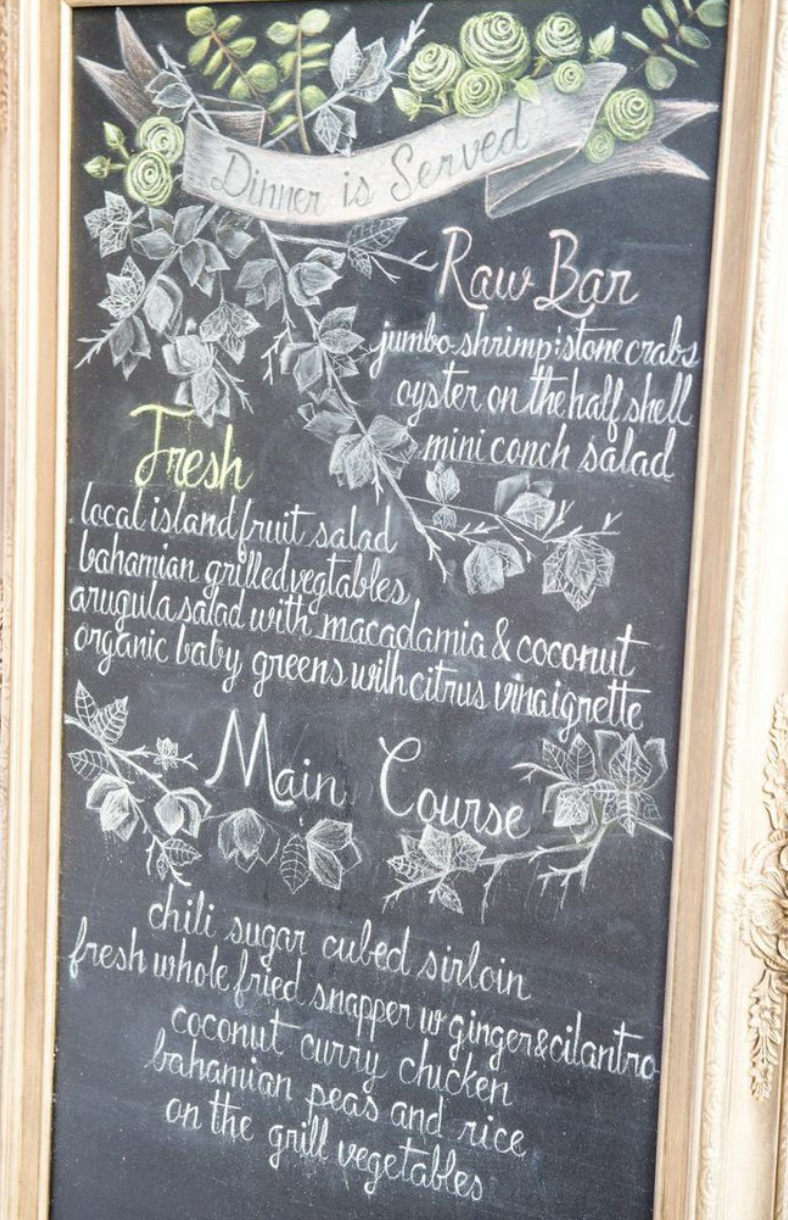 Dinner is Served
Raw Bar
jumbo shrimp & stone crabs
oyster on the half shell
mini conch salad
Fresh
local island fruit salad
bahamian grilled vegtables
arugula salad with macadamia & coconut
organic baby greens with citrus vinaigrette
Main Course
chili sugar cubed sirloin
fresh whole fried snapper w ginger & cilantro
coconut curry chicken
bahamian peas and rice
on the grill vegetables